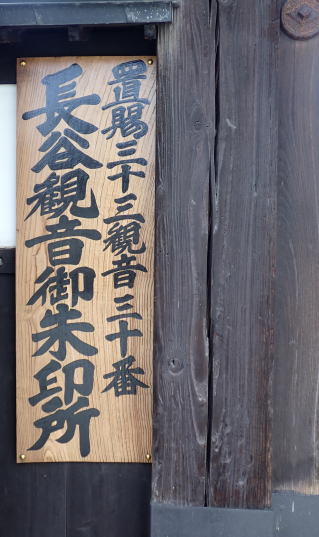 置賜三十三観音三十番
長谷観音御朱印所